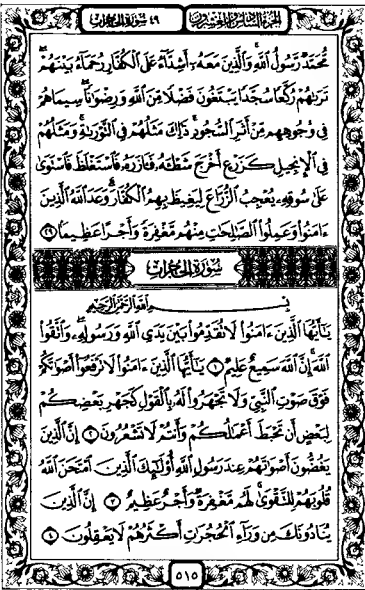 الجزء السادس والعشرون
٤٩ سورة الحجرات
مُّحَمَّدٌ رَّسُولُ اللَّهِ وَالَّذِينَ مَعَهُ أَشِدَّاءُ عَلَى الْكُفَّارِ رُحَمَاءُ بَيْنَهُمْ
تَرَاهُمْ رُكَّعًا سُجَّدًا يَبْتَغُونَ فَضْلًا مِّنَ اللَّهِ وَرِضْوَانًا سِيمَاهُمْ
فِي وُجُوهِهِم مِّنْ أَثَرِ السُّجُودِ ذَٰلِكَ مَثَلُهُمْ فِي التَّوْرَاةِ وَمَثَلُهُمْ
فِي الْإِنجِيلِ كَزَرْعٍ أَخْرَجَ شَطْـَٔهُ فَـَٔازَرَهُ فَاسْتَغْلَظَ فَاسْتَوَىٰ
عَلَىٰ سُوقِهِ يُعْجِبُ الزُّرَّاعَ لِيَغِيظَ بِهِمُ الْكُفَّارَ وَعَدَ اللَّهُ الَّذِينَ
ءَامَنُوا وَعَمِلُوا الصَّالِحَاتِ مِنْهُم مَّغْفِرَةً وَأَجْرًا عَظِيمًا ٢٩
سورة الحجرات
بِسْمِ اللَّهِ الرَّحْمَٰنِ الرَّحِيمِ
يَٰٓأَيُّهَا الَّذِينَ ءَامَنُوا لَا تُقَدِّمُوا بَيْنَ يَدَيِ اللَّهِ وَرَسُولِهِ وَاتَّقُوا
اللَّهَ إِنَّ اللَّهَ سَمِيعٌ عَلِيمٌ ١ يَٰٓأَيُّهَا الَّذِينَ ءَامَنُوا لَا تَرْفَعُوا أَصْوَٰتَكُمْ
فَوْقَ صَوْتِ النَّبِيِّ وَلَا تَجْهَرُوا لَهُ بِالْقَوْلِ كَجَهْرِ بَعْضِكُمْ
لِبَعْضٍ أَن تَحْبَطَ أَعْمَٰلُكُمْ وَأَنتُمْ لَا تَشْعُرُونَ ٢ إِنَّ الَّذِينَ
يَغُضُّونَ أَصْوَٰتَهُمْ عِندَ رَسُولِ اللَّهِ أُولَٰئِكَ الَّذِينَ امْتَحَنَ اللَّهُ
قُلُوبَهُمْ لِلتَّقْوَىٰ لَهُم مَّغْفِرَةٌ وَأَجْرٌ عَظِيمٌ ٣ إِنَّ الَّذِينَ
يُنَادُونَكَ مِن وَرَاءِ الْحُجُرَاتِ أَكْثَرُهُمْ لَا يَعْقِلُونَ ٤
٥١٥